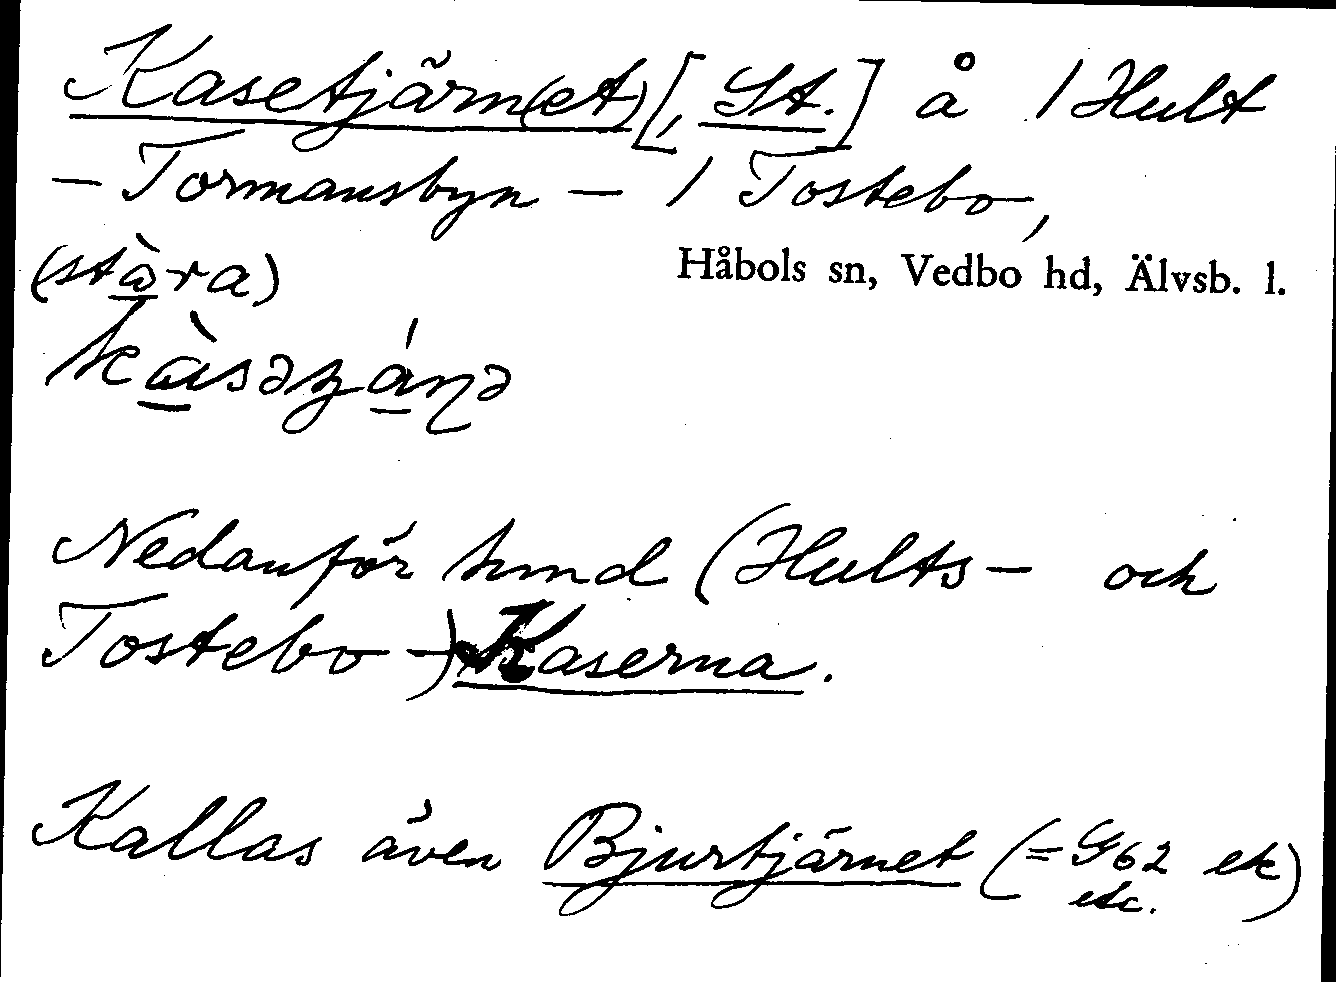 Kasetjärn(et)[, St.] å 1 Hult
– Tormansbyn – 1 Tostebo,
(stàra)
Håbols sn, Vedbo hd, Älvsb. l.
Nedanför hmd (Hults- och
Tostebo-) Kaserna.
Kallas även Bjurtjärnet (= G62 ek)
etc.